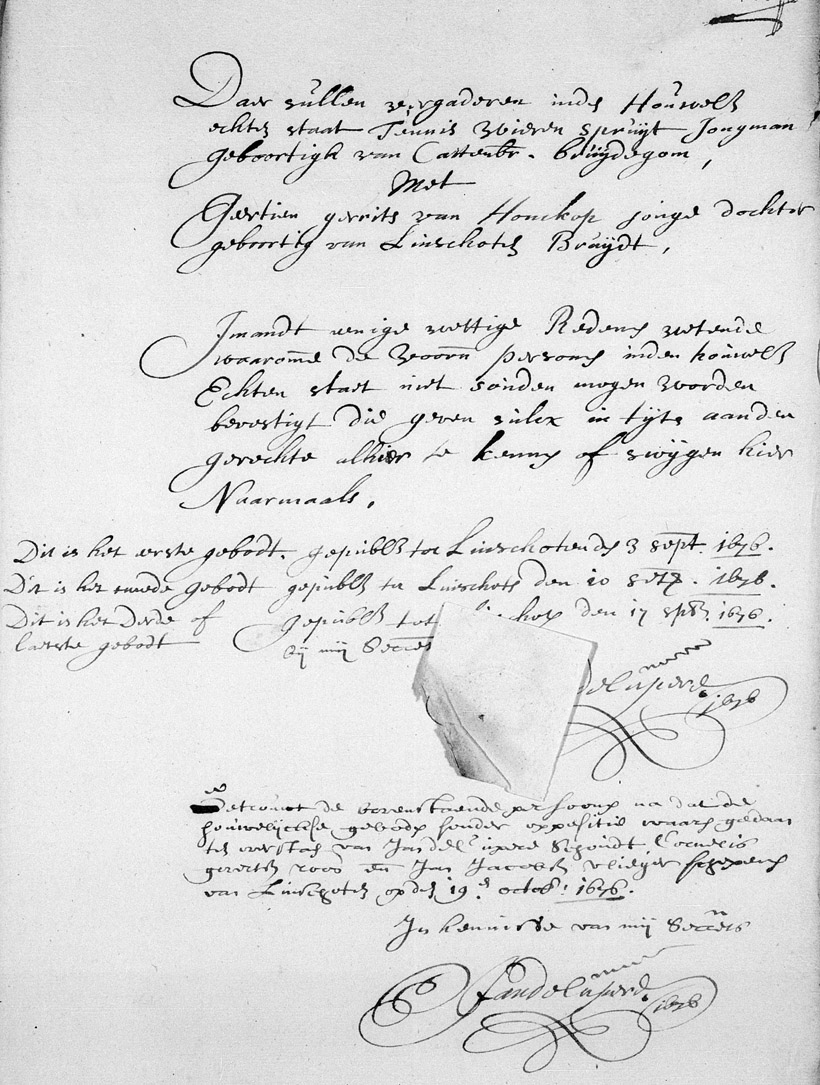 Daer sullen vergaderen inden Houwelk
echten staat Teunis Dircxen Spruijt Jongman
Geboortigh van Cattenbr. bruijdegom,
Met
Gertien gerrits van Honckop jonge dochter
geboortig van Linschoten Bruijdt,
Jmandt eenige wettige Redenen wetende
waaromme de voorn persoonen inden houwelk
Echten staet niet souden mogen worden
bevestigt die geven sulcx in tijts aanden
gerechte alhier te kennen of swijgen hier
Naarmaals,
Dit is het eerste gebodt. gepublt tot Linschoten den 3 sept. 1676.
Dit is het tweede gebodt gepublt tot Linschoten den 10 1676.
Dit is het Derde of gepublt tot den 17 1676.
laetste gebodt bij mij Secrets
1676
Getrout de bovenstaende persoonen na dat de
houwelijckse geboden sonder oppositie waren gedaan
ten overstaen van Schoudt Cornelis
gerritsen roos en Jan Jacobsen vlieger schepens
van Linschoten op den 19e octob: 1676.
In kennisse van mij Secrets
1676